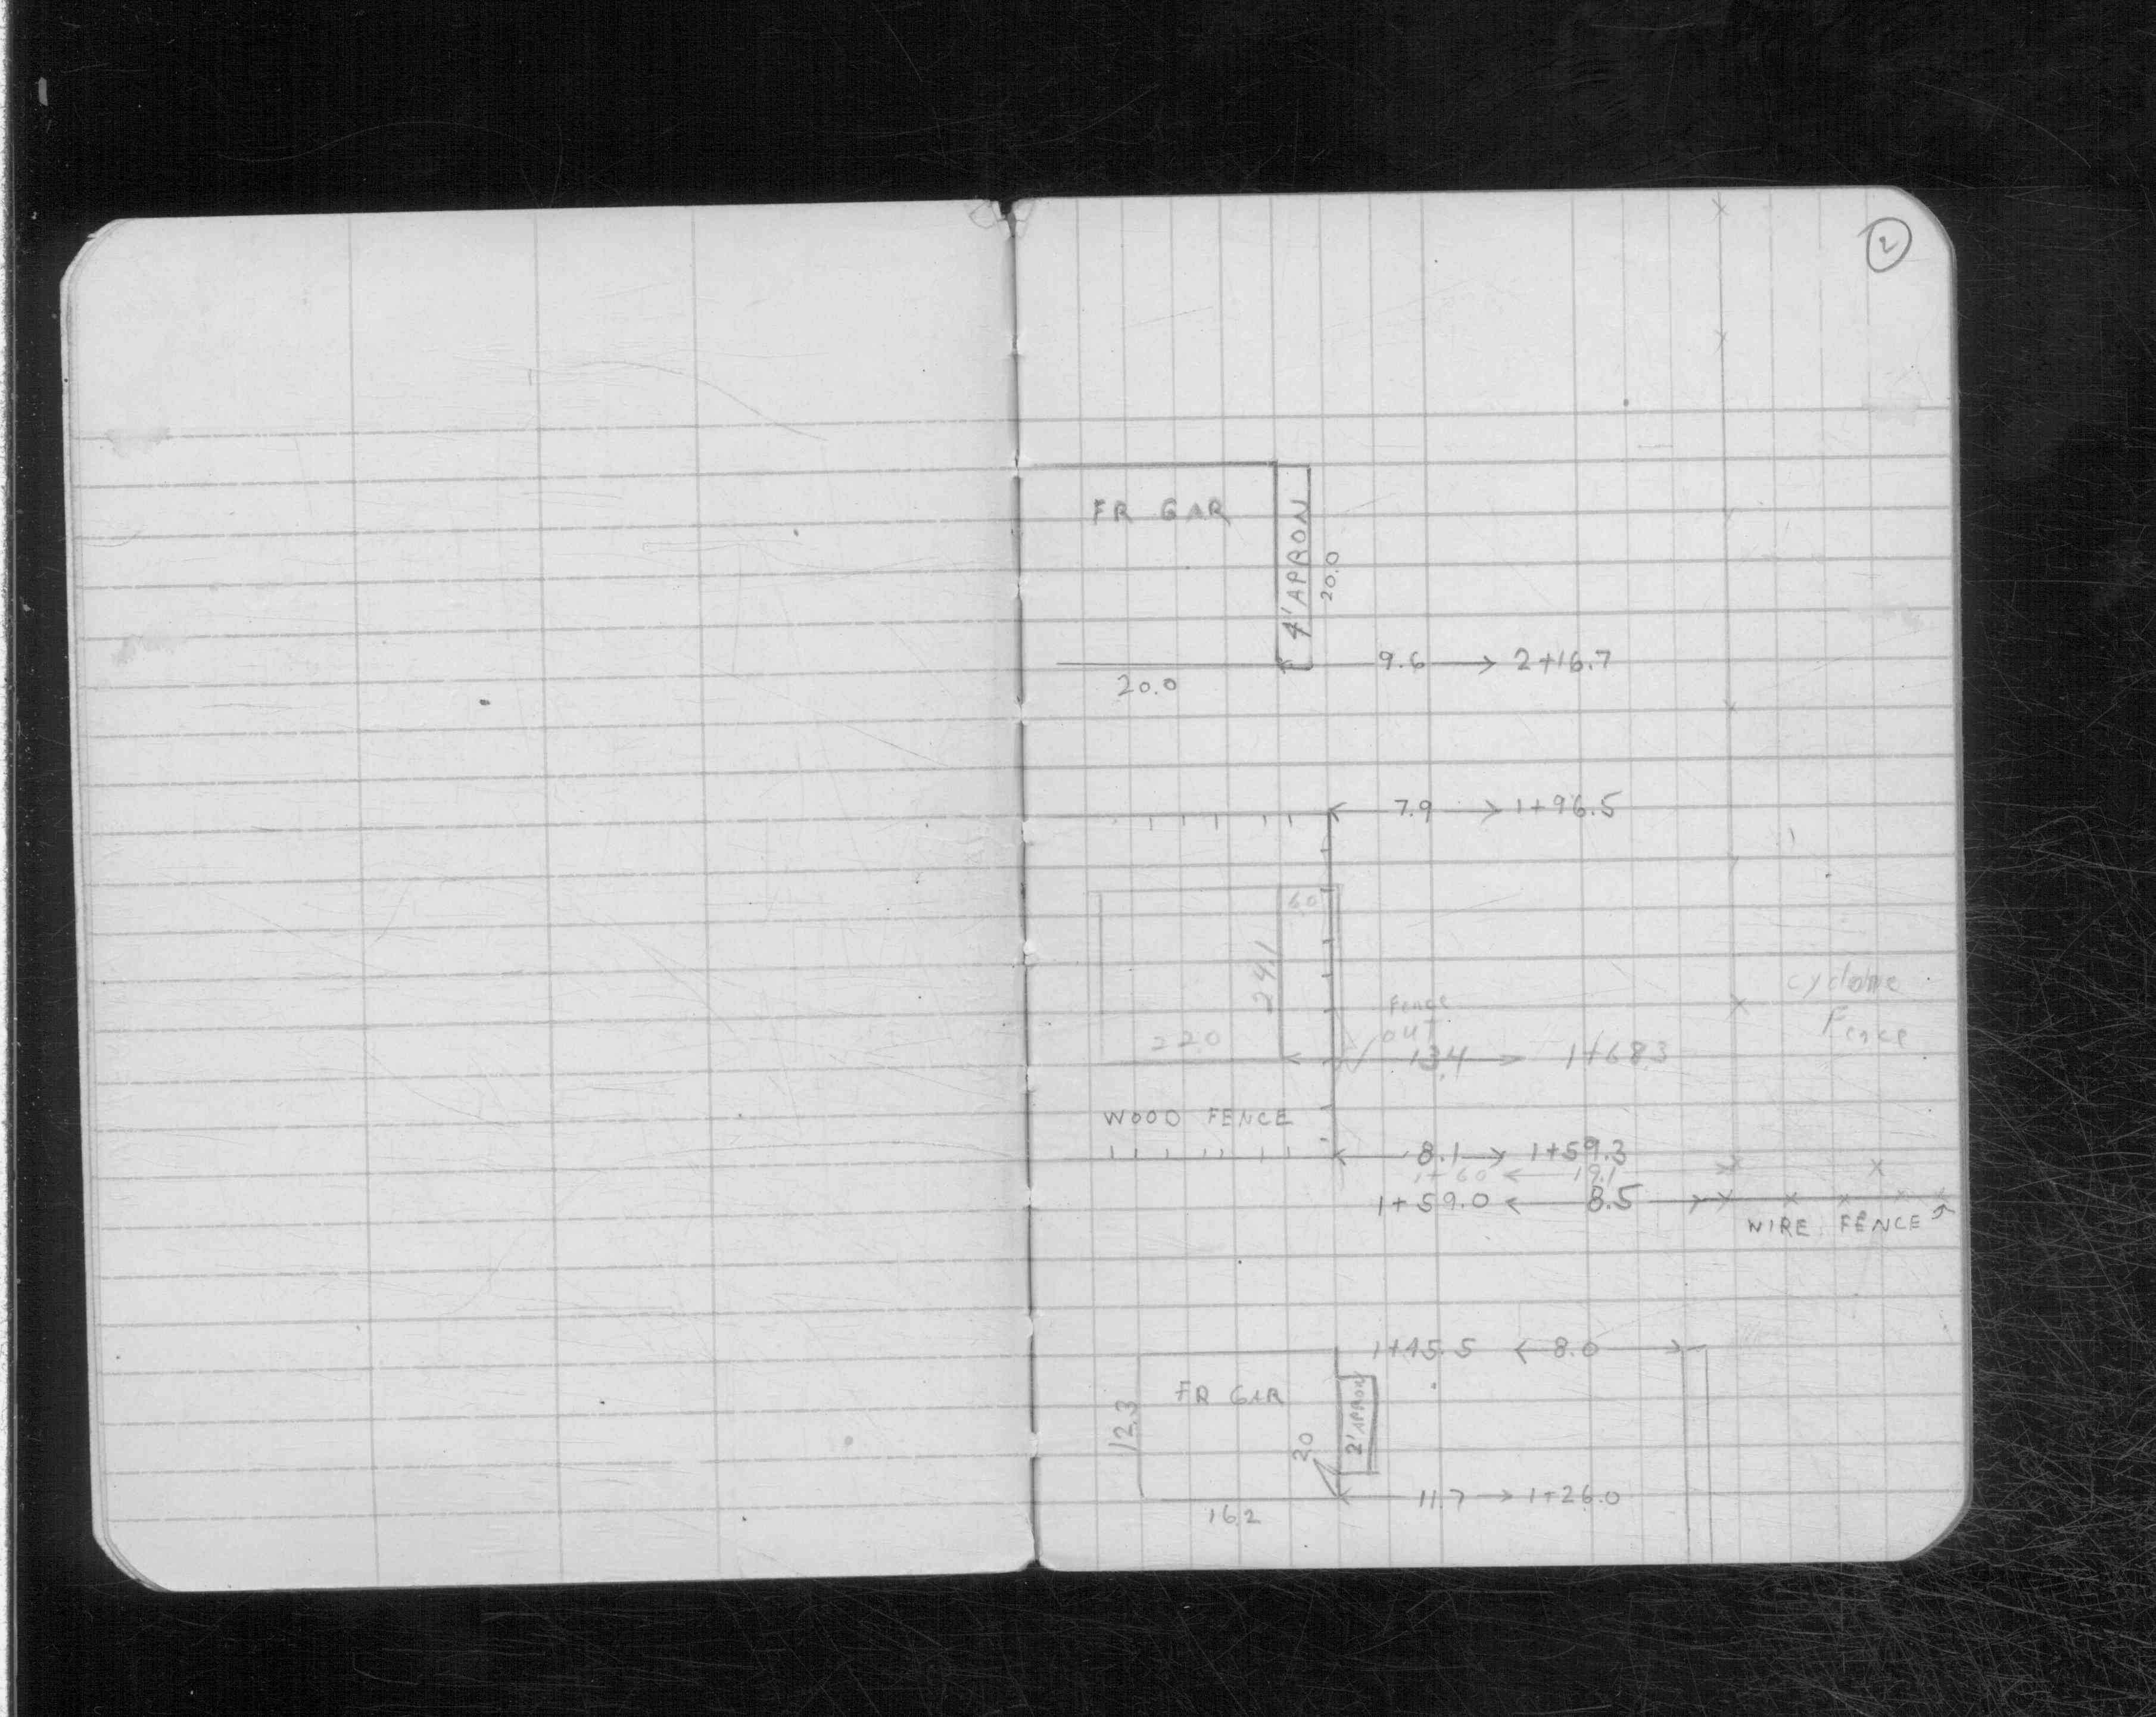 2
FR GAR
4' APRON
20.0
9.6 → 2+16.7
20.0
← 7.9 → 1+96.5
6.0
24.1
Cyclone
Fence
Fence
out
22.0
← 13.4 → 1+68.3
WOOD FENCE
← 8.1 → 1+59.3
1+60 ← 19.1
1+59.0 ← 8.5 →
WIRE FENCE
1+45.5 ← 8.0 →
FR GAR
2' APRON
12.3
20
← 11.7 → 1+26.0
16.2